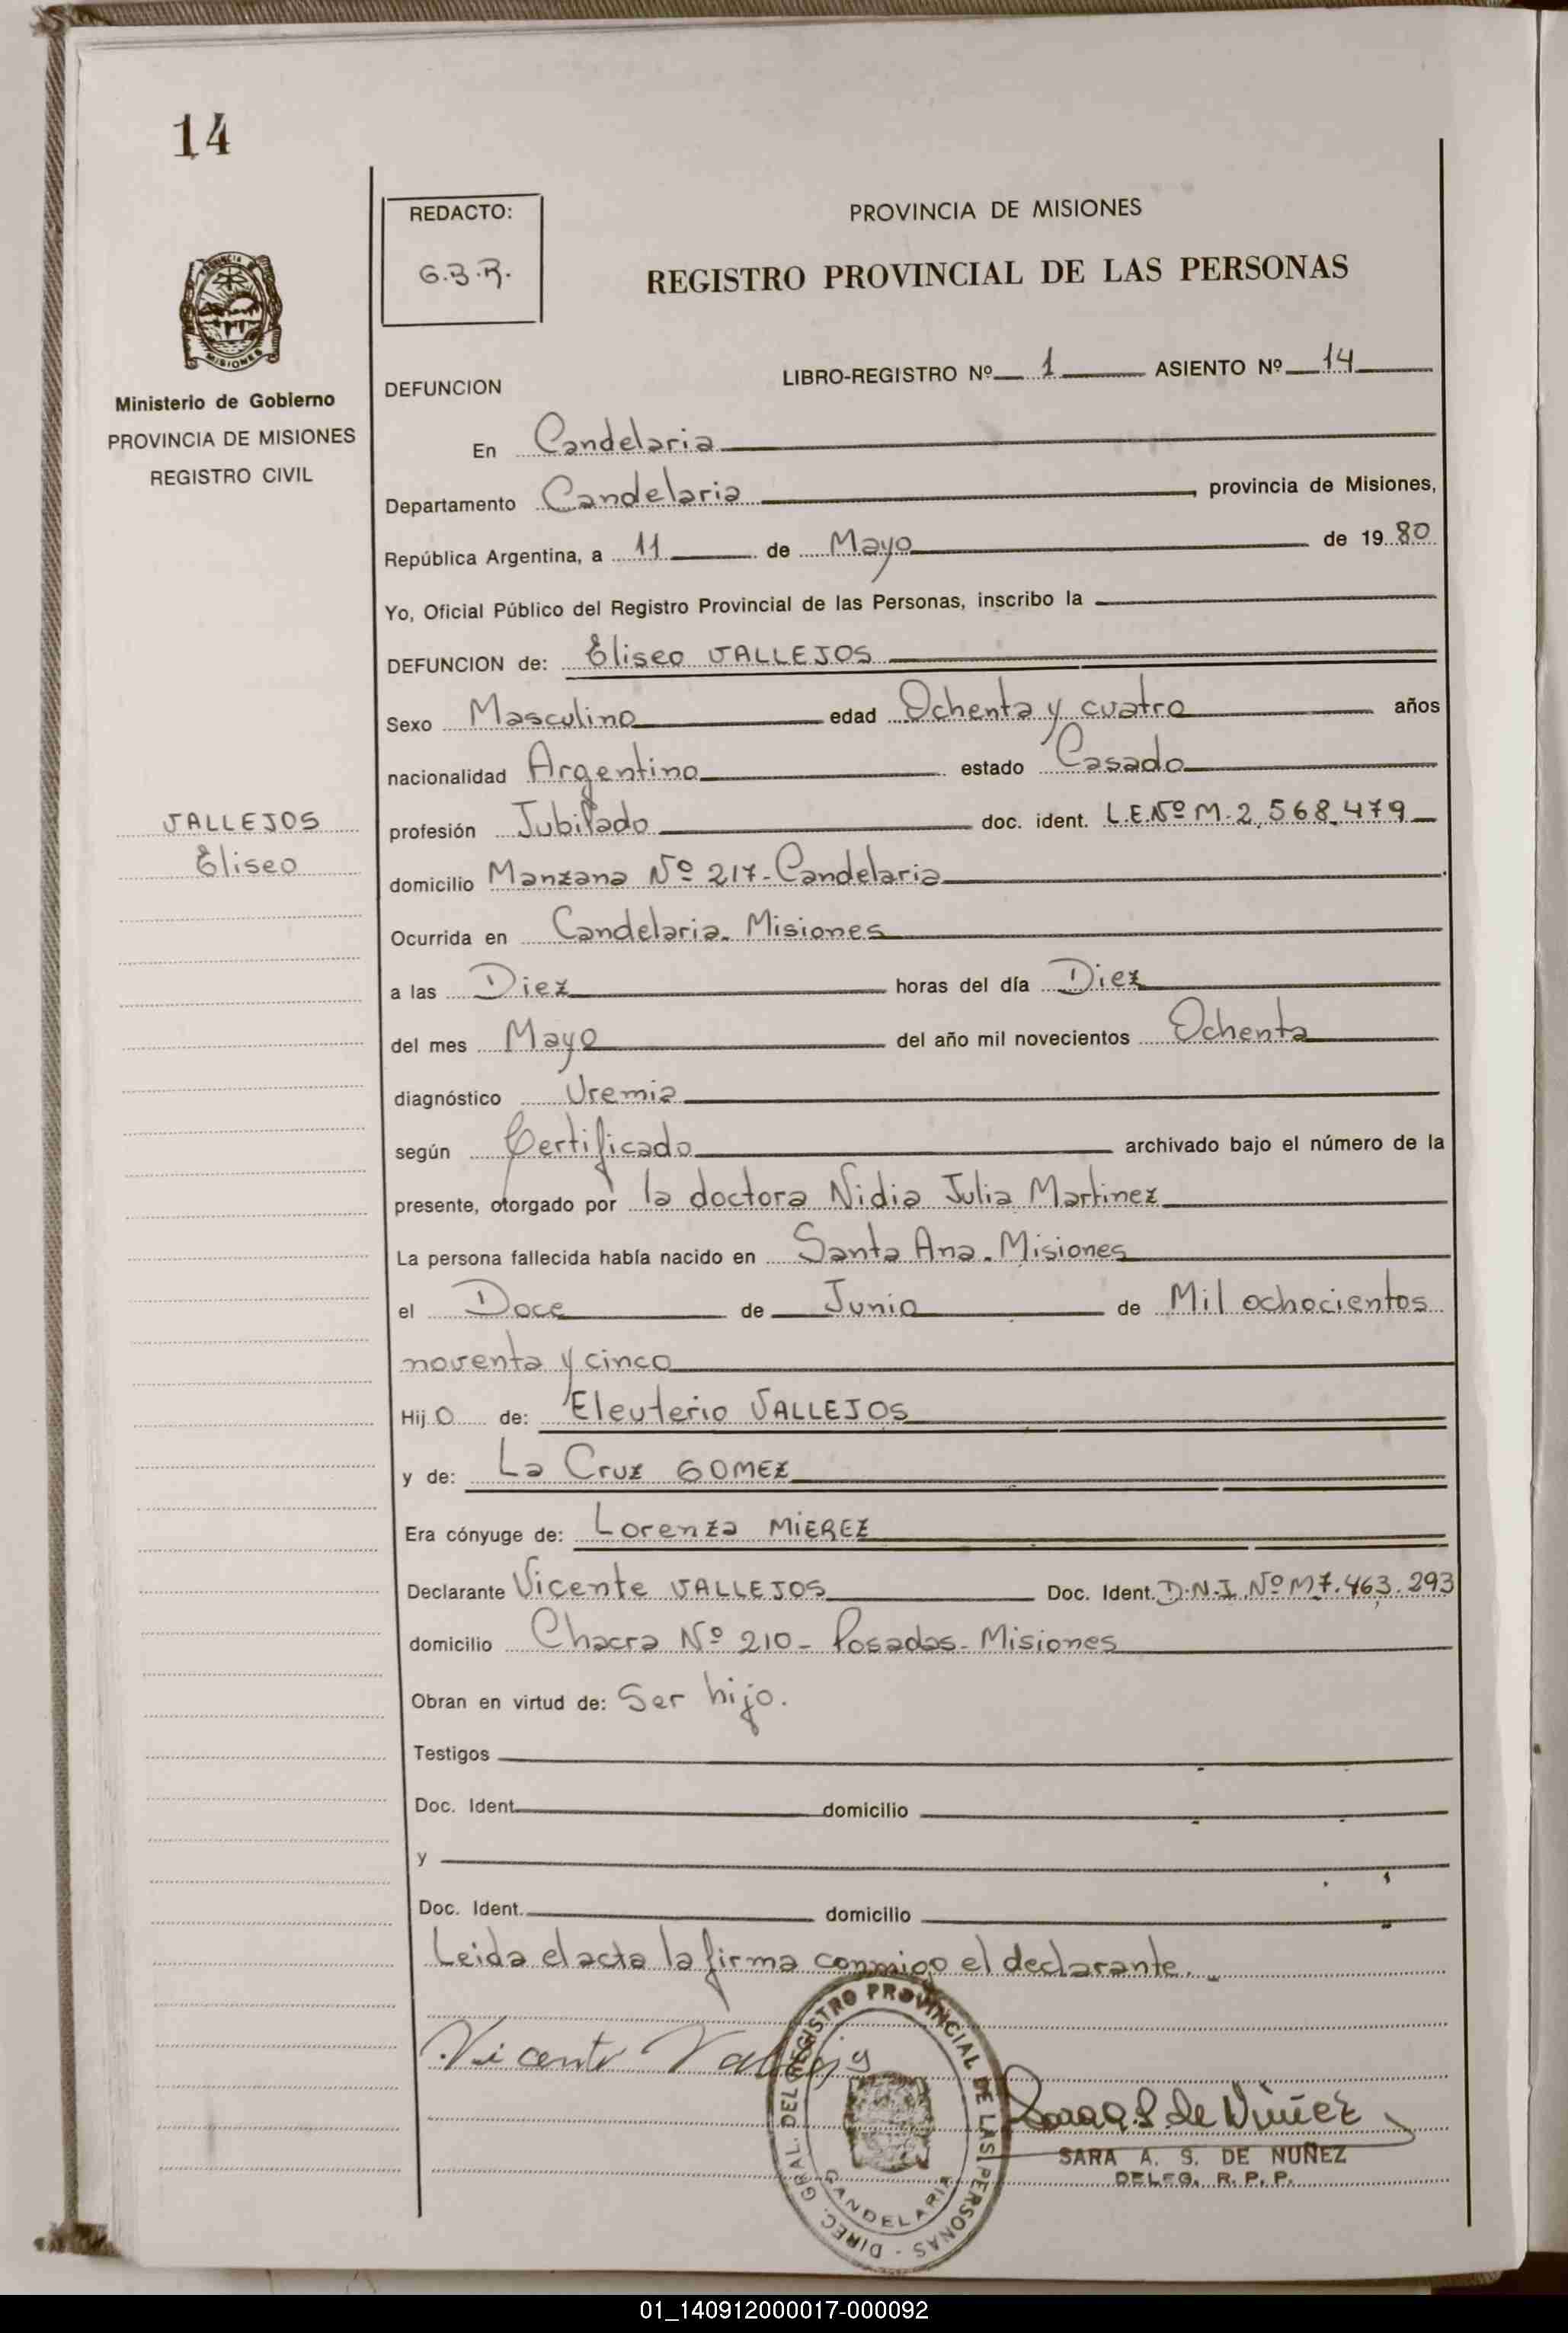 14
REDACTO:
G.B.R.
PROVINCIA DE MISIONES
REGISTRO PROVINCIAL DE LAS PERSONAS
PROVINCIA DE
MISIONES
Ministerio de Gobierno
PROVINCIA DE MISIONES
REGISTRO CIVIL
DEFUNCION
LIBRO-REGISTRO Nº 1 ASIENTO Nº 14
En Candelaria
Departamento Candelaria, provincia de Misiones,
República Argentina, a 11 de Mayo de 1980
Yo, Oficial Público del Registro Provincial de las Personas, inscribo la
DEFUNCION de: Eliseo VALLEJOS
Sexo Masculino edad Ochenta y cuatro años
nacionalidad Argentino estado Casado
VALLEJOS
Eliseo
profesión Jubilado doc. ident. L.E.Nº M. 2,568.479
domicilio Manzana Nº 217- Candelaria
Ocurrida en Candelaria. Misiones
a las Diez horas del día Diez
del mes Mayo del año mil novecientos Ochenta
diagnóstico Uremia
según Certificado archivado bajo el número de la
presente, otorgado por la doctora Nidia Julia Martinez
La persona fallecida había nacido en Santa Ana. Misiones
el Doce de Junio de Mil ochocientos
noventa y cinco
Hijo de: Eleuterio VALLEJOS
y de: La Cruz GOMEZ
Era cónyuge de: Lorenza MiEREZ
Declarante Vicente VALLEJOS Doc. Ident. D.N.I. Nº M7.463.293
domicilio Chacra Nº 210- Posadas- Misiones
Obran en virtud de: Ser hijo.
Testigos
Doc. Ident. domicilio
y
Doc. Ident. domicilio
Leida el acta la firma conmigo el declarante.
Vicente Vallejos
DIREC. GRAL. DEL REGISTRO PROVINCIAL DE LAS PERSONAS -
CANDELARIA
Sara A. S de Núñez
SARA A. S. DE NUÑEZ
DELEG. R. P. P.
01_140912000017-000092